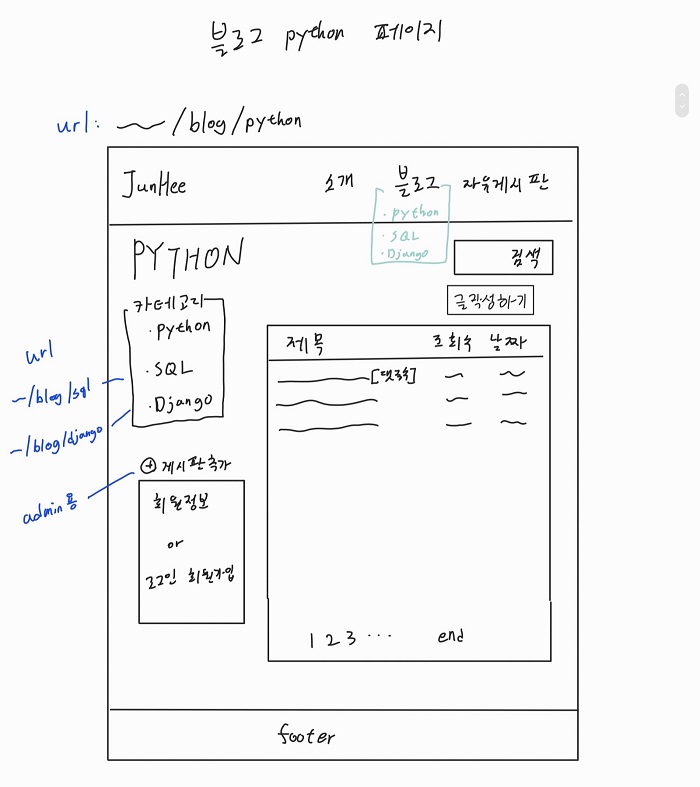 블로그 python 페이지
url: ~/blog/python
JunHee 소개 블로그 자유게시판
· python
· SQL
· Django
PYTHON
검색
글작성하기
카테고리
· python
· SQL
· Django
url
~/blog/sql
~/blog/django
제목 조회수 날짜
[댓글수]
⊕ 게시판추가
admin용
회원정보
or
로그인 회원가입
1 2 3 ··· end
footer